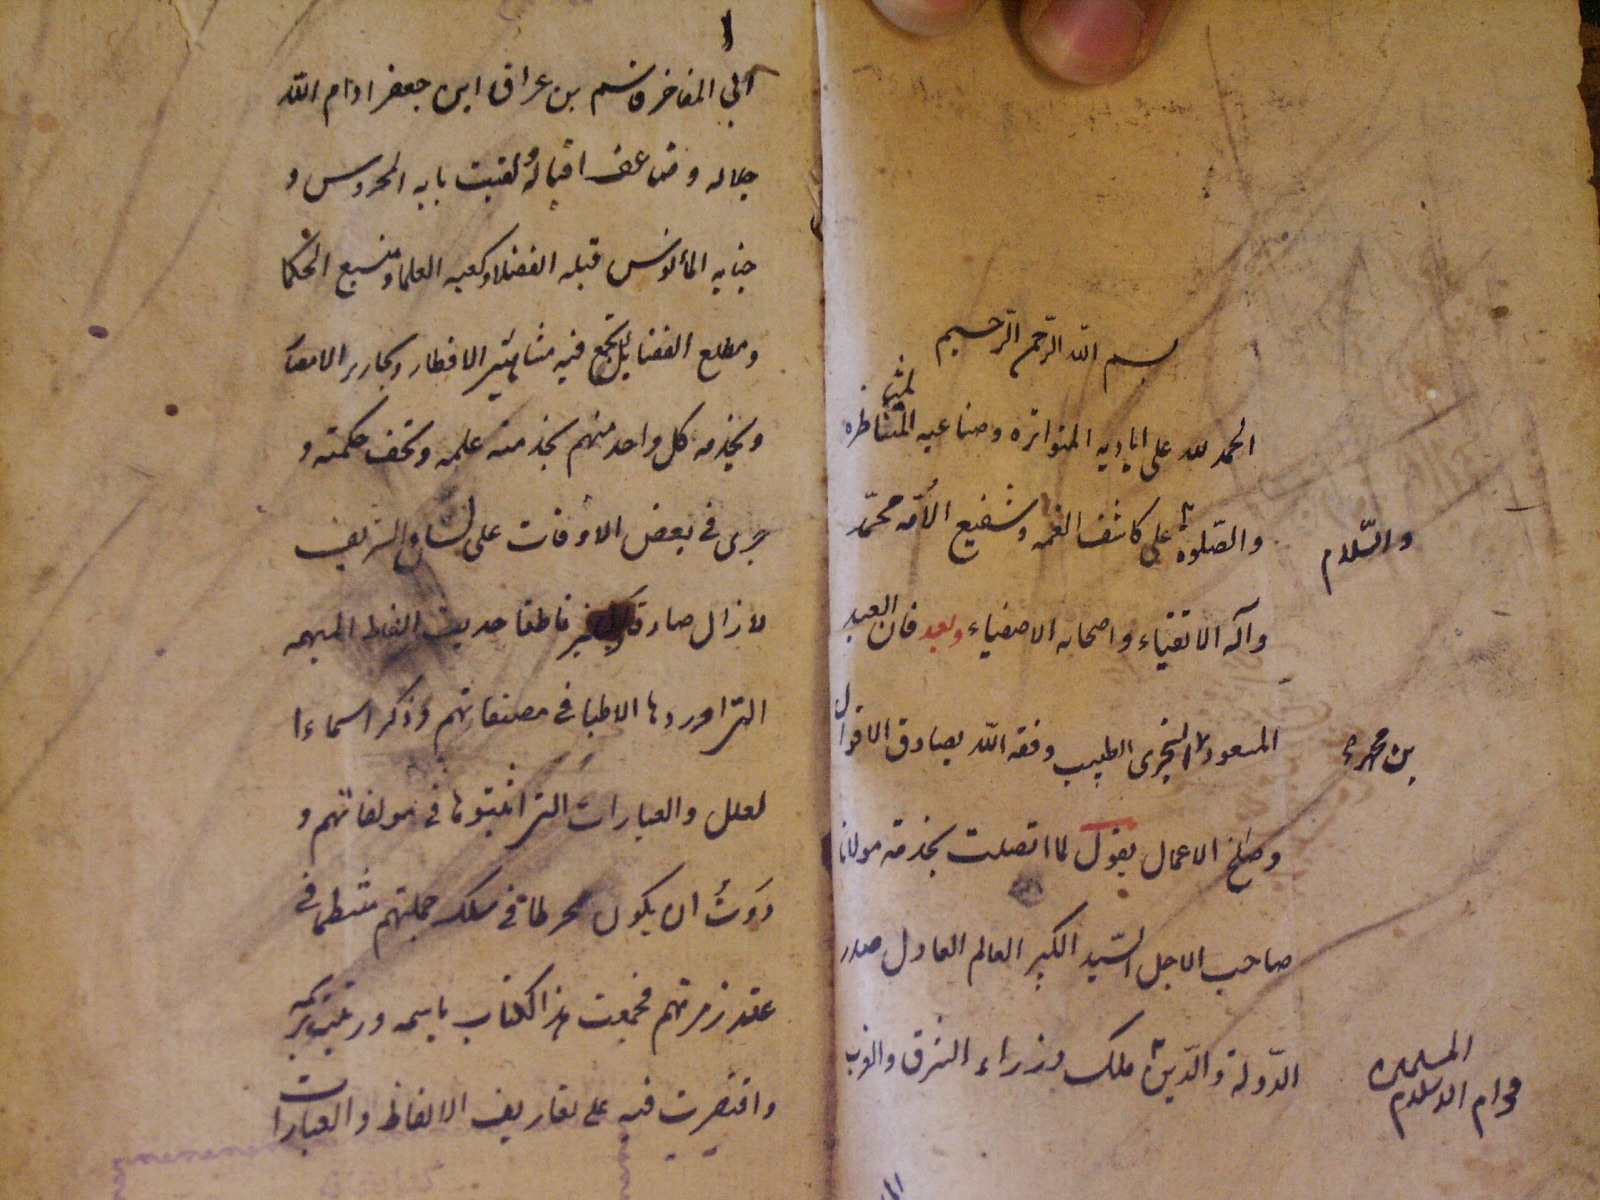 بسم الله الرحمن الرحيم
الحمد لله على اياديه المتواتره وصنايعه المتناظره
والصلوة على كاشف الغمه وشفيع الأمّه محمّد
والسّلام
وآله الاتقياء واصحابه الاصفياء وبعد فان العبد
المسعود السجزى الطبيب وفقه الله بصادق الاقوال
بن محمد
وصالح الاعمال يقول لما اتصلت بخدمة مولانا
صاحب الاجل السّيد الكبير العالم العادل صدر
الدّولة والدّين ملك وزراء الشرق والغرب
قوام الاسلام المسلمين
ابى المفاخر قاسم بن عراق ابن جعفر ادام الله
جلاله وضاعف اقباله ولقيت بابه المحروس و
جنابه المأنوس قبله الفضلا وكعبه العلما ومنبع الحكما
ومطلع الفضايل يجتمع فيه مشاهير الاقطار ونحارير الامصار
ويخدمه كل واحد منهم بخدمته علمه وتحف حكمته و
جرى فى بعض الأوقات على لسان الشريف
لا زال صادقا ناطقا الفاظ المبهمه
التى اوردها الاطبا فى مصنفاتهم وذكر اسماء
لعلل والعبارات التى اثبتوها فى مولفاتهم و
ان يكون منخرطا فى سلك جملتهم منتظما فى
عقد زمرتهم فجمعت هذا الكتاب باسمه ورتبته
واقتصرت فيه على تعاريف الالفاظ والعبارات